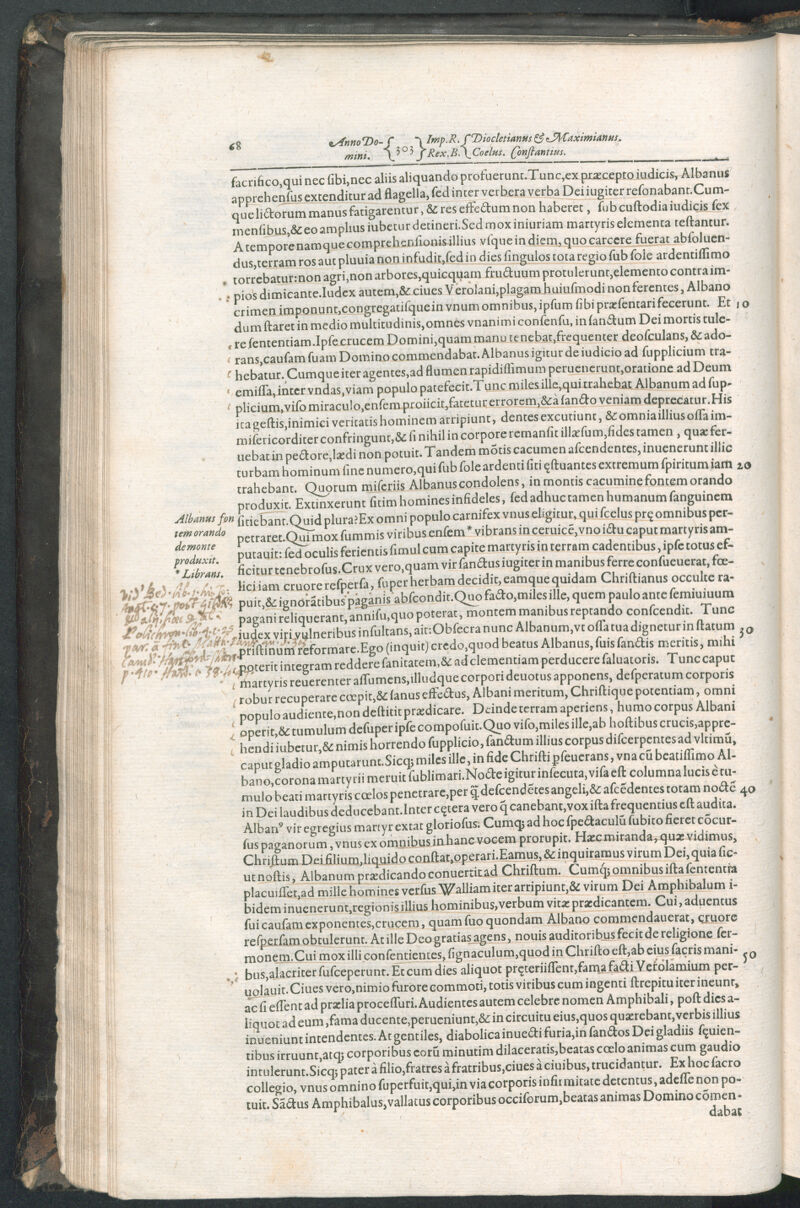 68
Anno Do- { } Imp. R. { Diocletianus & Maximianus.
mini. { 303 } Rex. B. { Coelus. Constantius.
sacrifico,qui nec sibi,nec aliis aliquando profuerunt.Tunc,ex præcepto iudicis, Albanus
apprehensus extenditur ad flagella, sed inter verbera verba Dei iugiter resonabant.Cum-
que lictorum manus fatigarentur, & res effectum non haberet, sub custodia iudicis sex
mensibus,& eo amplius iubetur detineri.Sed mox iniuriam martyris elementa testantur.
A tempore namque comprehensionis illius vsque in diem, quo carcere fuerat absoluen-
dus,terram ros aut pluuia non infudit,sed in dies singulos tota regio sub sole ardentissimo
torrebatur:non agri,non arbores,quicquam fructuum protulerunt,elemento contra im-
pios dimicante.Iudex autem,& ciues Verolani,plagam huiusmodi non ferentes, Albano
crimen imponunt,congregatisque in vnum omnibus, ipsum sibi præsentari fecerunt. Et 10
dum staret in medio multitudinis,omnes vnanimi consensu, in sanctum Dei mortis tule-
re sententiam.Ipse crucem Domini,quam manu tenebat,frequenter deosculans, & ado-
rans,causam suam Domino commendabat.Albanus igitur de iudicio ad supplicium tra-
hebatur. Cumque iter agentes,ad flumen rapidissimum peruenerunt,oratione ad Deum
emissa,inter vndas,viam populo patefecit.Tunc miles ille,qui trahebat Albanum ad sup-
plicium,viso miraculo,ensem proiicit,fatetur errorem,& à sancto veniam deprecatur.His
ita gestis,inimici veritatis hominem arripiunt, dentes excutiunt, & omnia illius ossa im-
misericorditer confringunt,& si nihil in corpore remansit illæsum,fides tamen, quæ fer-
uebat in pectore,lædi non potuit. Tandem mōtis cacumen ascendentes, inuenerunt illic
turbam hominum sine numero,qui sub sole ardenti siti ęstuantes extremum spiritum iam 20
trahebant. Quorum miseriis Albanus condolens, in montis cacumine fontem orando
produxit. Extinxerunt sitim homines infideles, sed adhuc tamen humanum sanguinem
Albanus fon
tem orando
de monte
produxit.
* Librans.
sitiebant.Quid plura?Ex omni populo carnifex vnus eligitur, qui scelus pro omnibus per-
petraret.Qui mox summis viribus ensem * vibrans in ceruicē,vno ictu caput martyris am-
putauit: sed oculis ferientis simul cum capite martyris in terram cadentibus, ipse totus ef-
ficitur tenebrosus.Crux vero,quam vir sanctus iugiter in manibus ferre consueuerat, fœ-
lici iam cruore respersa, super herbam decidit, eamque quidam Christianus occulte ra-
puit,& ignorātibus paganis abscondit.Quo facto,miles ille, quem paulo ante semiuiuum
pagani reliquerant,annisu,quo poterat, montem manibus reptando conscendit. Tunc
iudex viri vulneribus insultans, ait:Obsecra nunc Albanum,vt ossa tua dignetur in statum 30
pristinum reformare.Ego (inquit) credo,quod beatus Albanus,suis sanctis meritis, mihi
poterit integram reddere sanitatem,& ad clementiam perducere saluatoris. Tunc caput
martyris reuerenter assumens,illudque corpori deuotus apponens, desperatum corporis
robur recuperare cœpit,& sanus effectus, Albani meritum, Christique potentiam, omni
populo audiente,non destitit prædicare. Deinde terram aperiens, humo corpus Albani
operit,& tumulum desuper ipse composuit.Quo viso,miles ille,ab hostibus crucis,appre-
hendi iubetur,& nimis horrendo supplicio, sanctum illius corpus discerpentes ad vltimū,
caput gladio amputarunt.Sicq; miles ille, in fide Christi pseuerans, vna cū beatissimo Al-
bano,corona martyrii meruit sublimari.Nocte igitur insecuta,visa est columna lucis è tu-
mulo beati martyris cœlos penetrare,per q̄ descendētes angeli,& ascēdentes totam noctē 40
in Dei laudibus deducebant.Inter cętera vero q̄ canebant,vox ista frequentius est audita.
Albanꝰ vir egregius martyr extat gloriosus. Cumq; ad hoc spectaculū subito fieret cōcur-
sus paganorum, vnus ex omnibus in hanc vocem prorupit. Hæc miranda, quæ vidimus,
Christum Dei filium,liquido constat,operari.Eamus, & inquiramus virum Dei, quia sic-
ut nostis, Albanum prædicando conuertit ad Christum. Cumq; omnibus ista sententia
placuisset,ad mille homines versus Walliam iter arripiunt,& virum Dei Amphibalum i-
bidem inuenerunt,regionis illius hominibus,verbum vitæ prædicantem. Cui, aduentus
sui causam exponentes,crucem, quam suo quondam Albano commendauerat, cruore
respersam obtulerunt. At ille Deo gratias agens, nouis auditoribus fecit de religione ser-
monem.Cui mox illi consentientes, signaculum,quod in Christo est,ab eius sacris mani- 50
bus,alacriter susceperunt. Et cum dies aliquot pręteriissent,fama facti Verolamium per-
uolauit.Ciues vero,nimio furore commoti, totis viribus cum ingenti strepitu iter ineunt,
ac si essent ad prælia processuri.Audientes autem celebre nomen Amphibali, post dies a-
liquot ad eum, fama ducente,perueniunt,& in circuitu eius,quos quærebant,verbis illius
inueniunt intendentes.At gentiles, diabolica inuecti furia,in sanctos Dei gladiis sęuien-
tibus irruunt,atq; corporibus eorū minutim dilaceratis,beatas cœlo animas cum gaudio
intulerunt.Sicq; pater à filio,fratres à fratribus,ciues à ciuibus,trucidantur. Ex hoc sacro
collegio, vnus omnino superfuit,qui,in via corporis infirmitate detentus, adesse non po-
tuit. Sāctus Amphibalus,vallatus corporibus occisorum,beatas animas Domino cōmen-
dabat